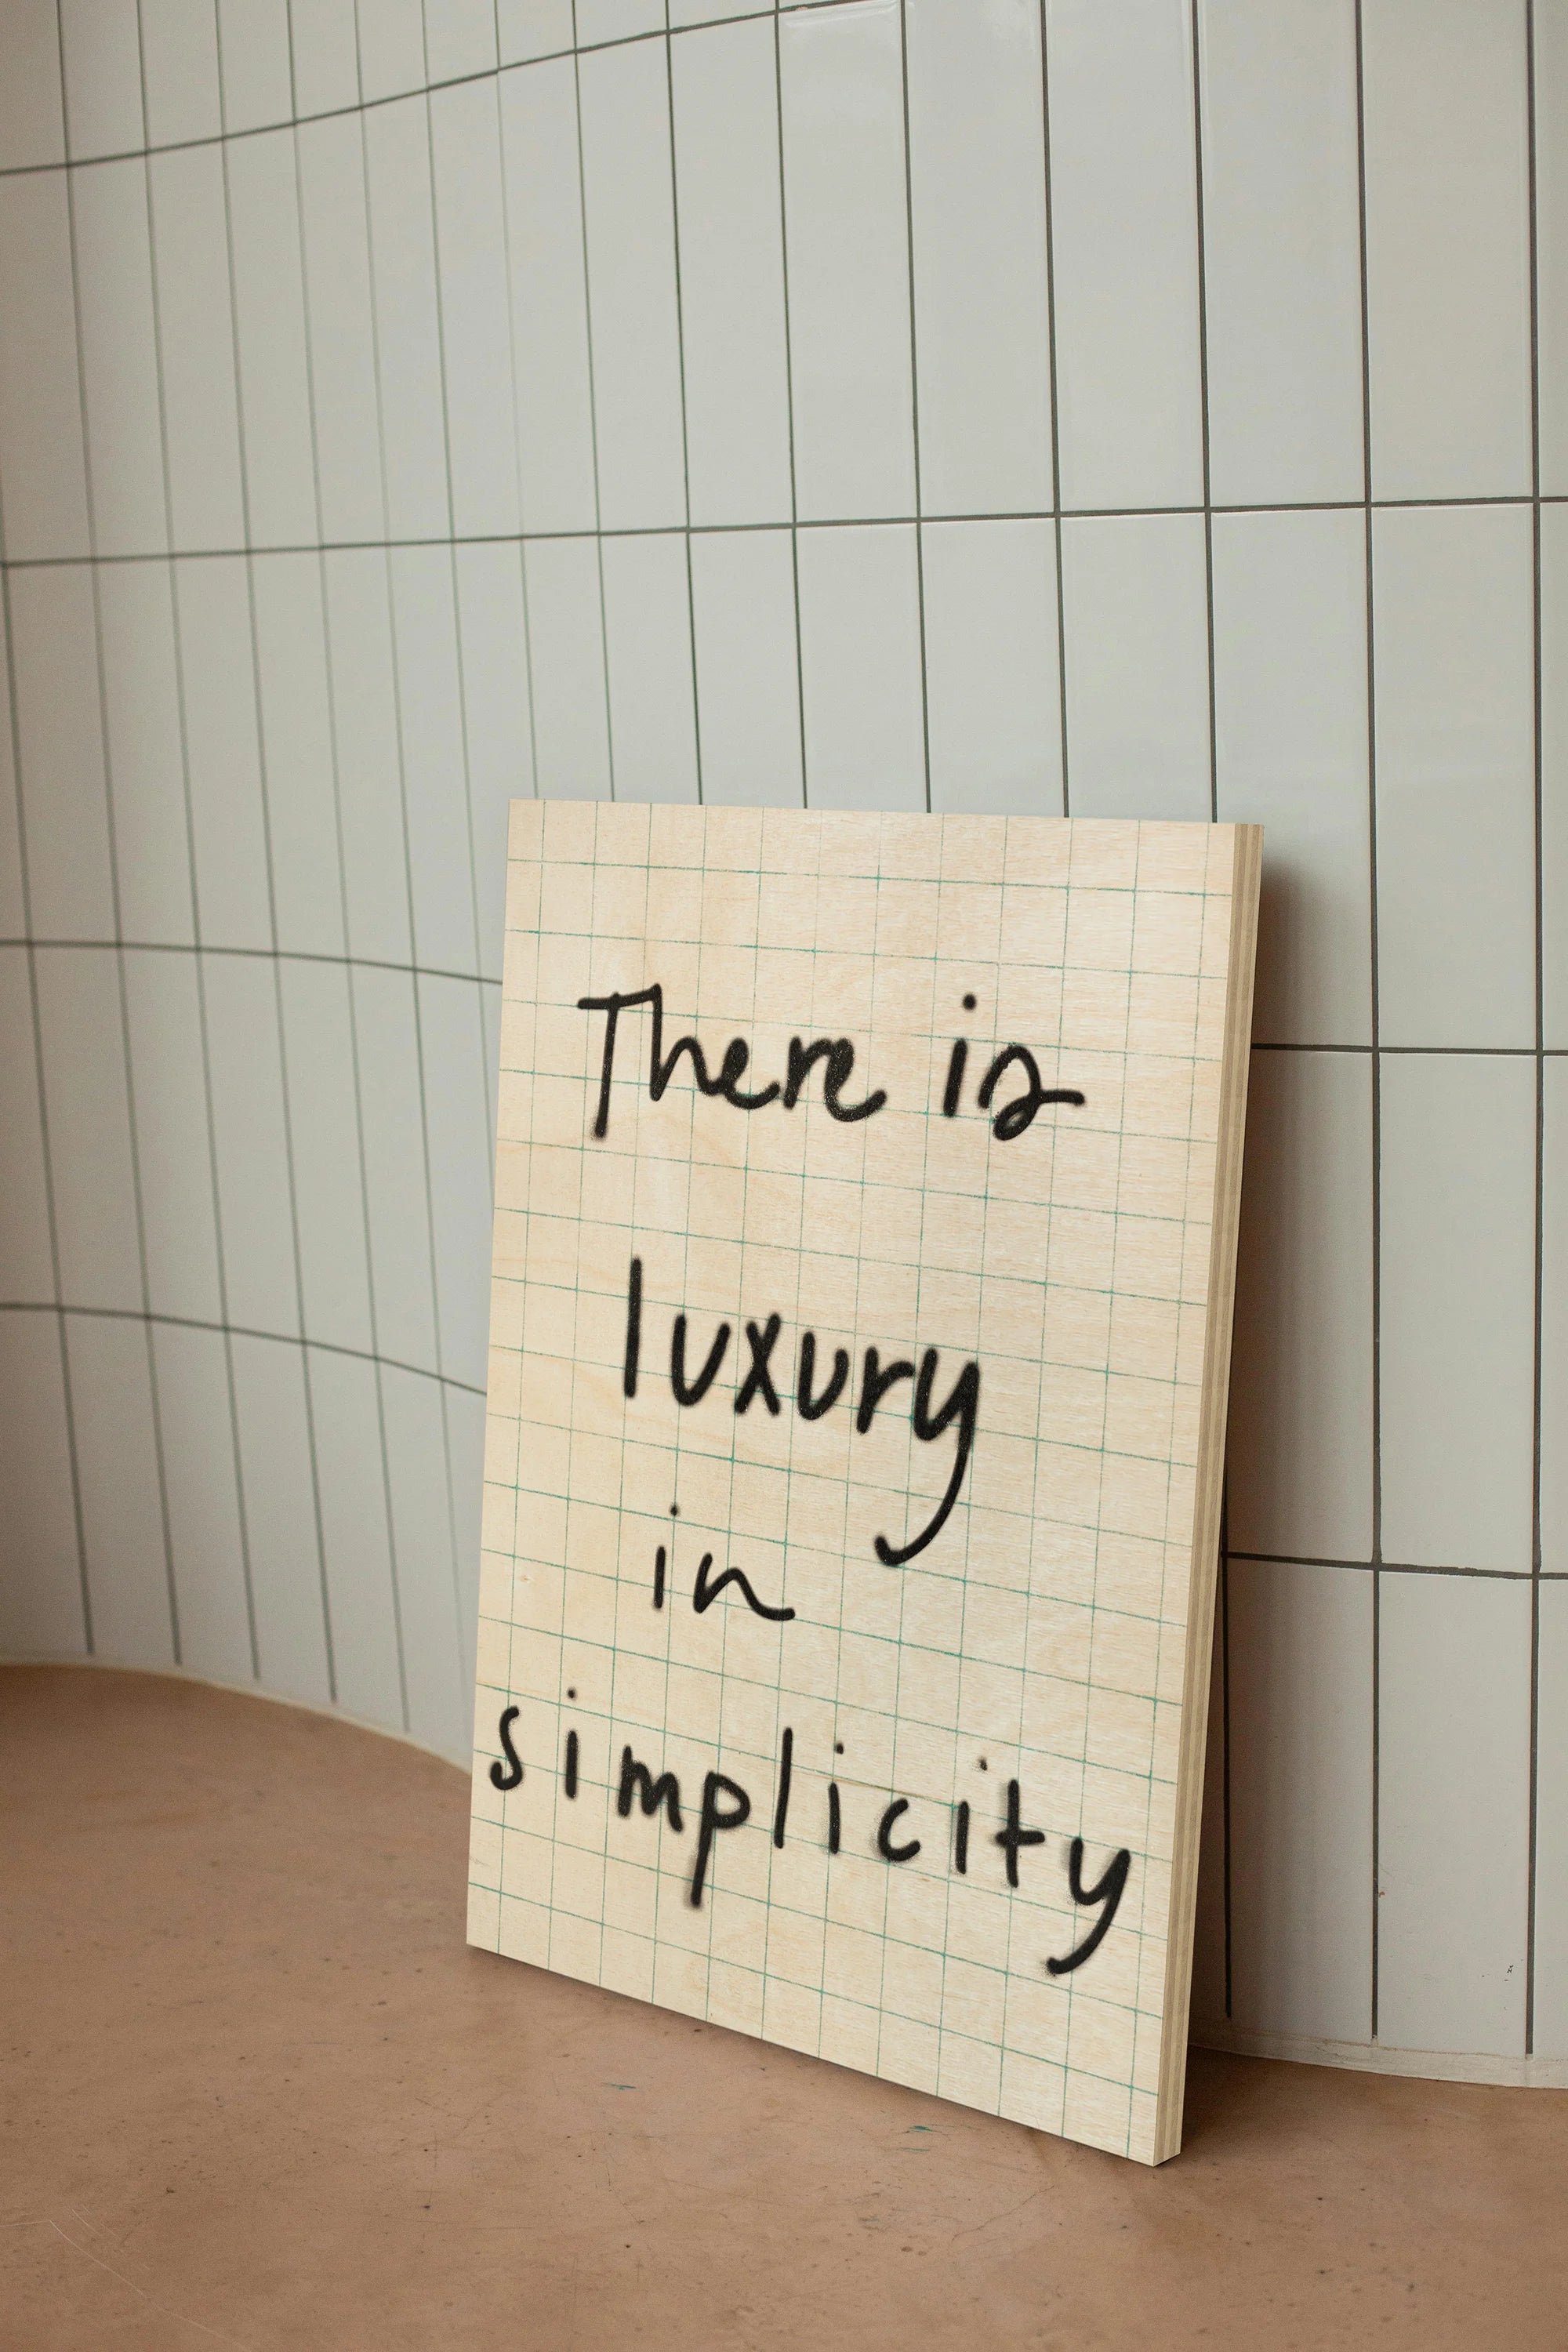 There is
luxury
in
simplicity